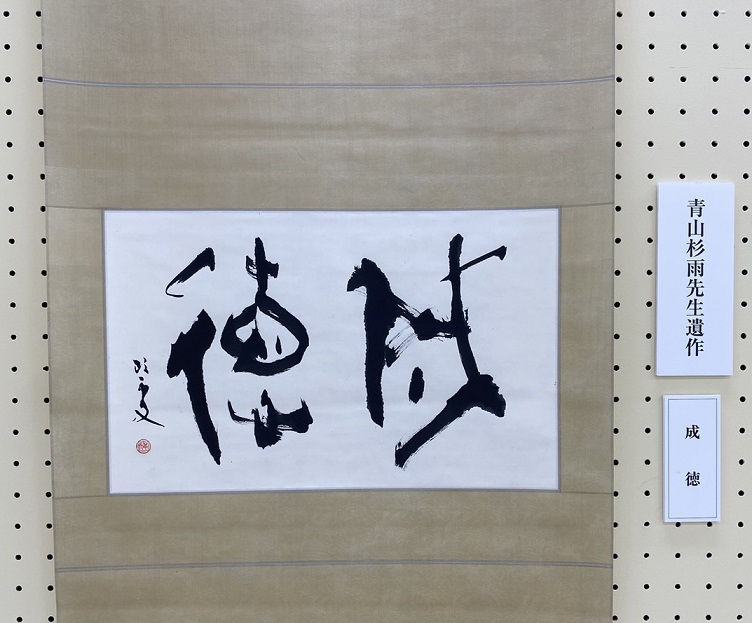 成徳
青山杉雨先生遺作
成徳